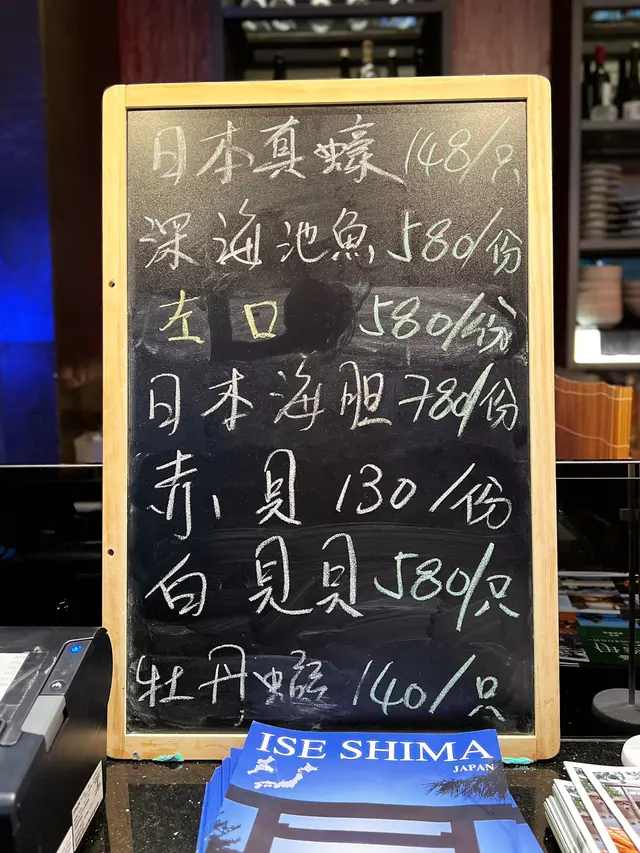 日本真蠔 148/只
深海池魚 580/份
左口 580/份
日本海胆 780/份
赤貝 130/份
白見貝 580/只
牡丹蝦 140/只
ISE SHIMA
JAPAN